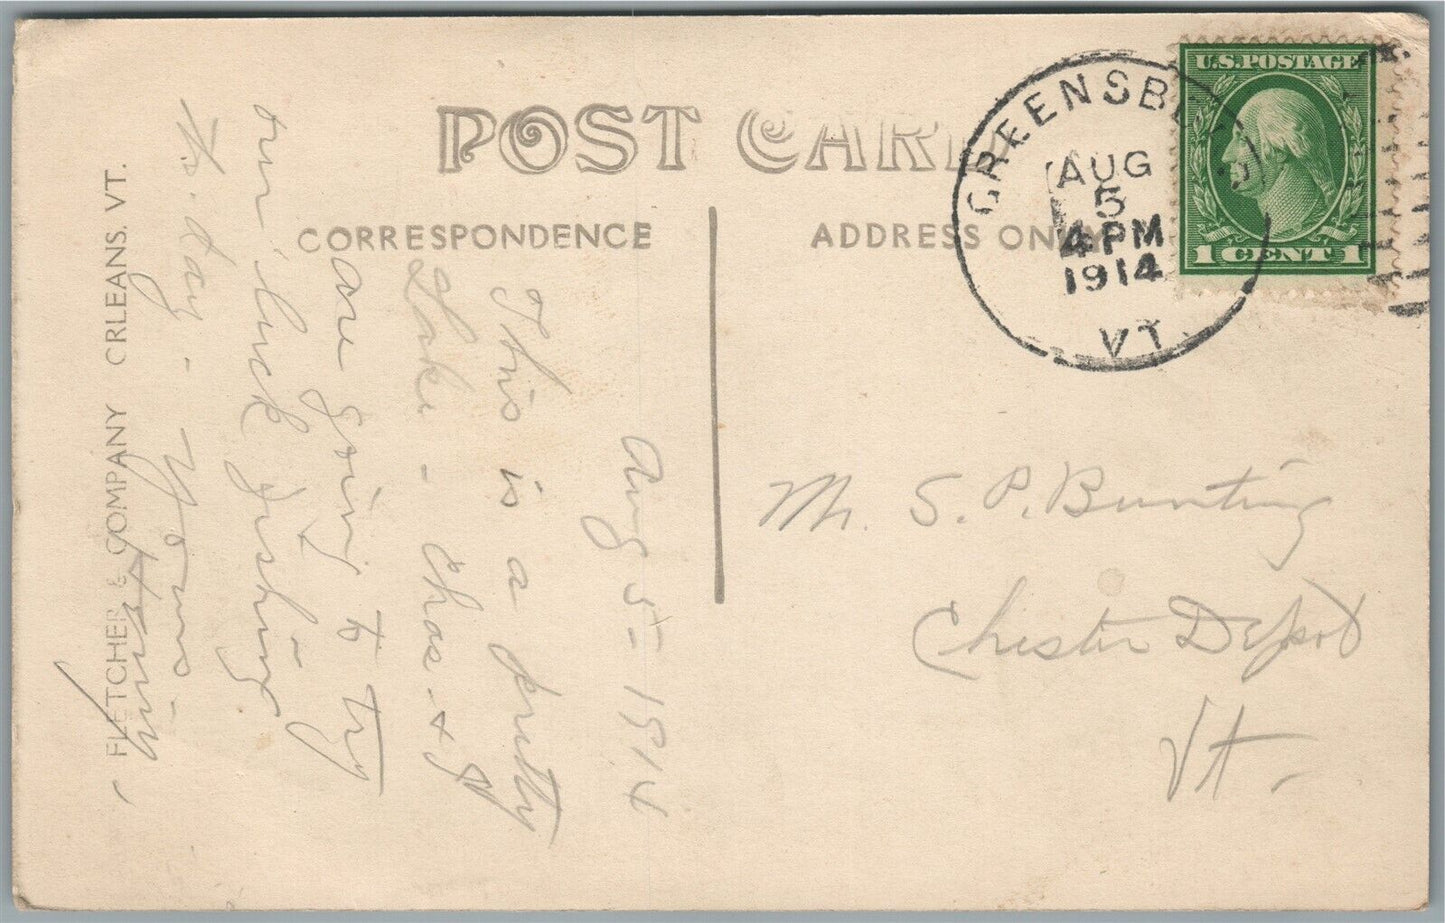 POST CARD
CORRESPONDENCE
ADDRESS ONLY
GREENSBORO
AUG
5
4 PM
1914
VT.
U.S. POSTAGE
1 CENT 1
Aug 5 - 1914
This is a pretty
Lake - Chas - & I
are going to try
our luck fishing.
to day - Yours -
Henry
Mr. S. P. Bunting
Chester Depot
Vt -
FLETCHER & COMPANY ORLEANS, VT.